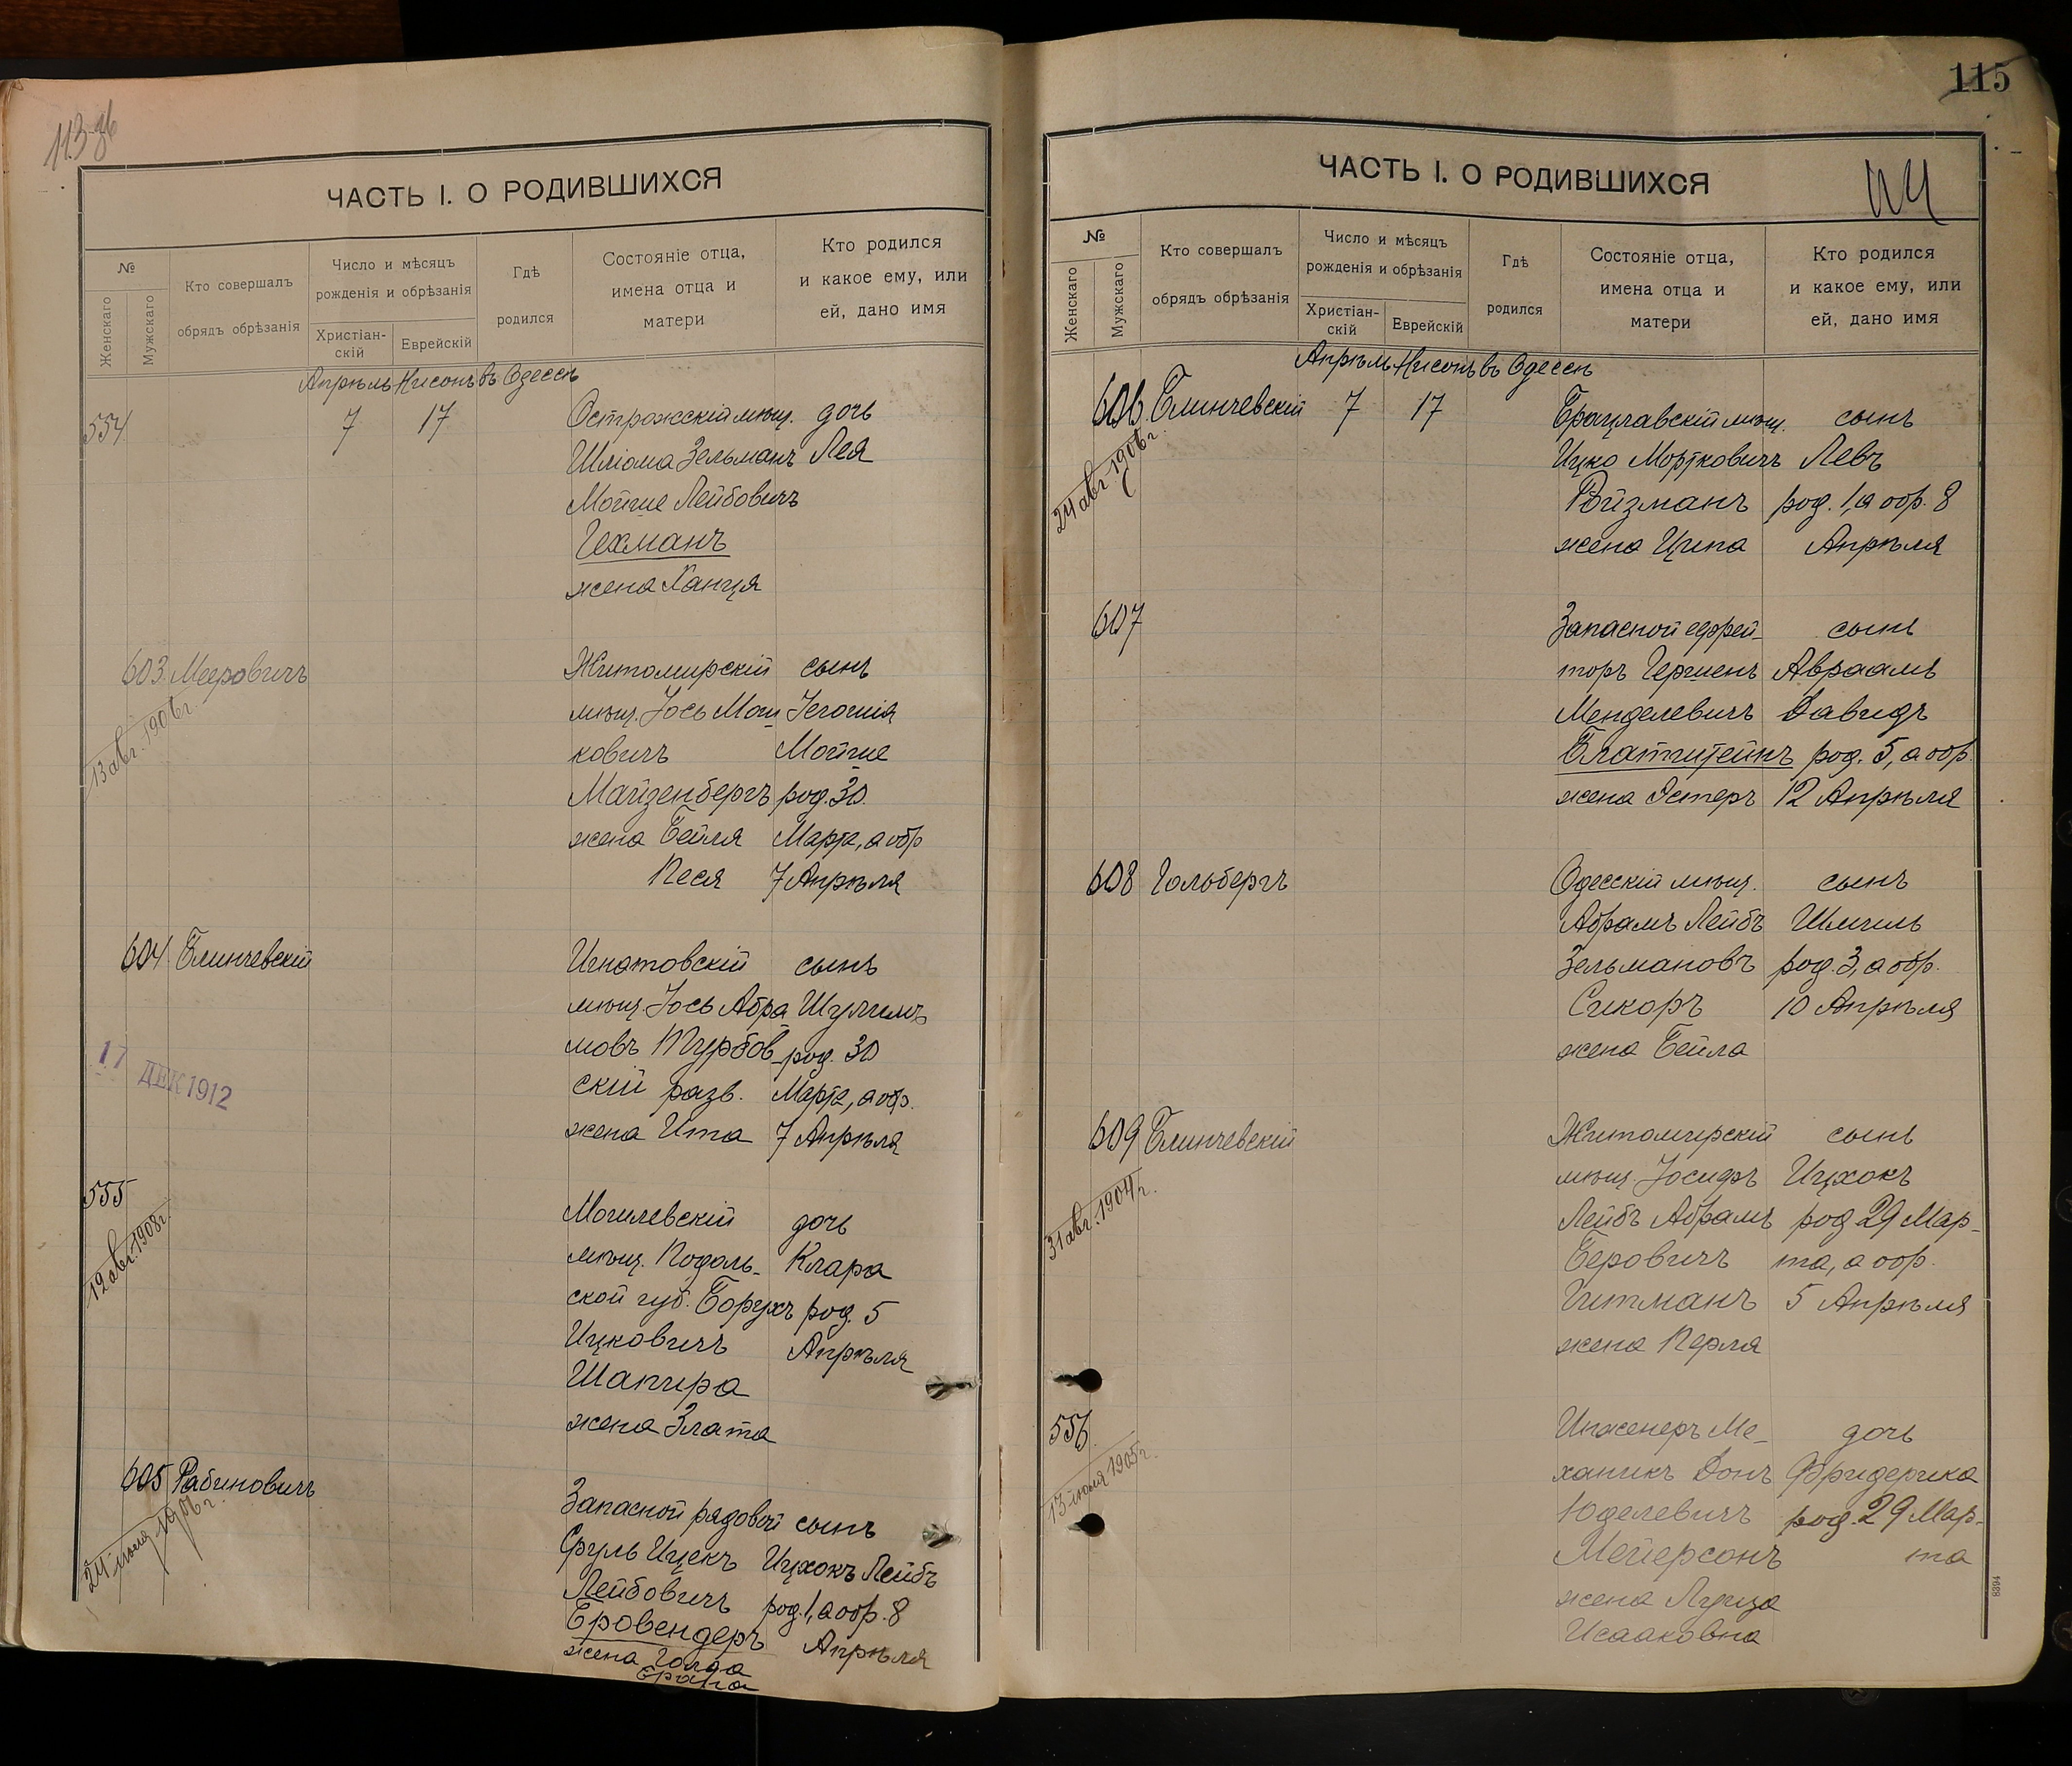 113 об
ЧАСТЬ I. О РОДИВШИХСЯ
№
Женскаго
Мужскаго
Кто совершалъ
обрядъ обрѣзанія
Число и мѣсяцъ
рожденія и обрѣзанія
Христіан-
скій
Еврейскій
Гдѣ
родился
Состояніе отца,
имена отца и
матери
Кто родился
и какое ему, или
ей, дано имя
Апрѣль Нисонъ въ Одессѣ
554 7 17 Острожскій мѣщ. дочь
Шліома Зельманъ Лея
Мойше Лейбовичъ
Гехманъ
жена Ханця
603 Мееровичъ Житомирскій сынъ
13 авг. 1906 г.
мѣщ. Іось Мош Іегошія
ковичъ Мойше
Майзенбергъ род. 30
жена Бейля Марта, а обр
Песя 7 Апрѣля
604 Блинчевскій Игнатовскій сынъ
мѣщ. Іось Абра Шулимъ
мовъ Турбов- род. 30
17 ДЕК 1912
скій разв. Марта, а обр.
жена Ита 7 Апрѣля
555
12 авг. 1908 г.
Могилевскій дочь
мѣщ. Подоль- Клара
ской губ. Борухъ род. 5
Ицковичъ Апрѣля
Шапира
жена Злата
605 Рабиновичъ Запасной рядовой сынъ
24 1906 г.
Сруль Ицекъ Ицхокъ Лейбъ
Лейбовичъ род. 1, а обр. 8
Бровендеръ Апрѣля
жена Голда
115
114
ЧАСТЬ I. О РОДИВШИХСЯ
№
Женскаго
Мужскаго
Кто совершалъ
обрядъ обрѣзанія
Число и мѣсяцъ
рожденія и обрѣзанія
Христіан-
скій
Еврейскій
Гдѣ
родился
Состояніе отца,
имена отца и
матери
Кто родился
и какое ему, или
ей, дано имя
Апрѣль Нисонъ въ Одессѣ
606 Блинчевскій 7 17 Брацлавскій мѣщ. сынъ
24 авг. 1906 г.
Ицко Мортковичъ Левъ
Ройзманъ род. 1, а обр. 8
жена Ципа Апрѣля
607 Запасной ефрей- сынъ
торъ Гершенъ Авраамъ
Менделевичъ Давидъ
Блатштейнъ род. 5, а обр.
жена Эстеръ 12 Апрѣля
608 Гольбергъ Одесскій мѣщ. сынъ
Абрамъ Лейбъ Шмиль
Зельмановъ род. 3, а обр.
Сикоръ 10 Апрѣля
жена Бейла
609 Блинчевскій Житомирскій сынъ
31 авг. 1904 г.
мѣщ. Іосифъ Ицхокъ
Лейбъ Абрамъ род 29 Мар-
Беровичъ та, а обр.
Гитманъ 5 Апрѣля
жена Перля
556 Инженеръ Ме- дочь
13 1905 г.
ханикъ Донъ Фридерика
Юделевичъ род. 29 Мар-
Мейерсонъ та
жена Луиза
Исааковна
8394